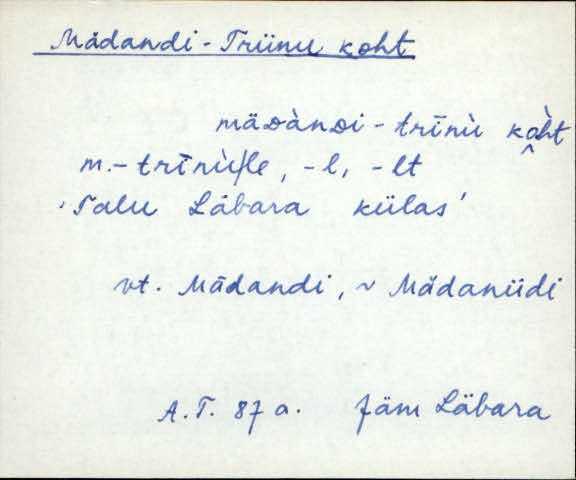 Mädandi-Triinu koht
mäᴅàndi - trīnù kòht
m.-trīnù/le, -l, -lt
'Talu Läbara külas'
vt. Mädandi, ~ Mädaniidi
A.T. 87 a. Jäm Läbara